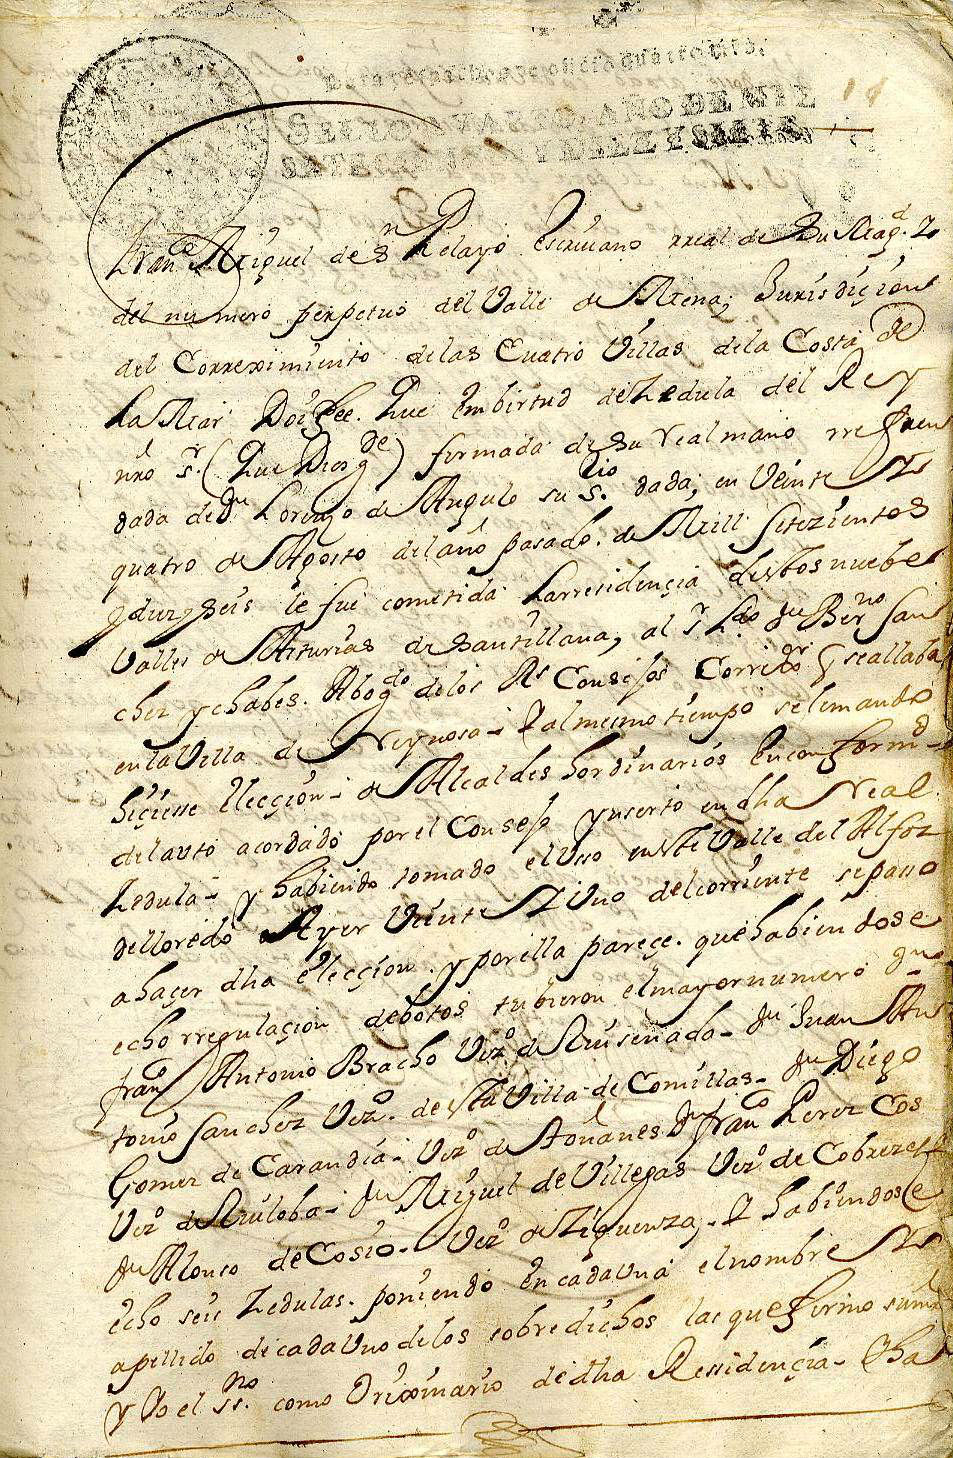 Para despachos de oficio quatro mrs.
SELLO QVARTO, AÑO DE MIL
SETECIENTOS Y DIEZ Y SIETE.
franco Miguel de Sn Pelayo escriuano rreal de Su Magd. Y
del numero perpetuo del Valle de Mena, Jurisdiçion
del Correximiento de las Cuatro Villas de la Costa de
la Mar Doi fee. Que en birtud de Zedula del Rey
nro sr. (que Dios gde) firmada de su real mano rrefren
dada de Dn Lorenzo de Angulo su Srio. dada, en Veinte y
quatro de Agosto del año pasado. de Mill Setezientos
y diez y seis le fue cometida la rresidençia destos nuebe
Valles de Asturias de Santillana, al sr Ldo dn Berno San
chez y chabes. Abogdo de los Rs Consejos Corrdor q se allaba
en la Villa de Reynosa - Y al mesmo tiempo se le mando
hiçiese elecçion - de Alcaldes hordinarios en conformd
del auto acordado por el Consejo ynserto en dha Real
Zedula - y habiendo tomado el Uso en este Valle del Alfoz
de lloredo Ayer Veinte y Uno del corriente se paso
a haçer dha elecçion. y por ella pareçe. que habiendose
echo rregulaçion de botos tubieron el mayor numero dn
franco Antonio Bracho Vezo. de Ruiseñada - dn Juan An
tonio Sanchez Vezo. de esta Villa de Comillas - dn Diego
Gomez de Carandia - Vezo de Nouales dn franco Perez Cos
Vezo de Ruiloba - dn Miguel de Villegas Vezo de Cobreçes
dn Alonso de Cosio - Vezo de Ziguenza, - Y habiendose
echo seis Zedulas. poniendo en cada una el nombre y
apellido de cada Uno de los sobredichos las que firmo su md
y Yo el ssno. como Orixinario de dha Residençia - Cha